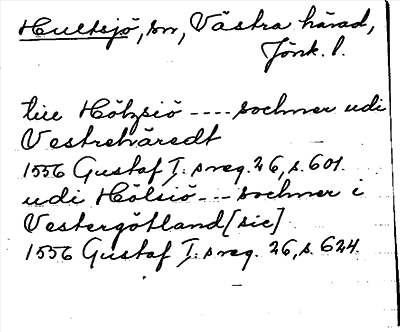 Hultsjö, sn, Västra härad,
Jönk. l.
till Hölzsiö ---- sochner udi
Vestrehäredt
1556 Gustaf I:s reg. 26, s. 601.
udi Hölsiö --- sochner i
Vestergötland [sic]
1556 Gustaf I:s reg. 26, s. 624.